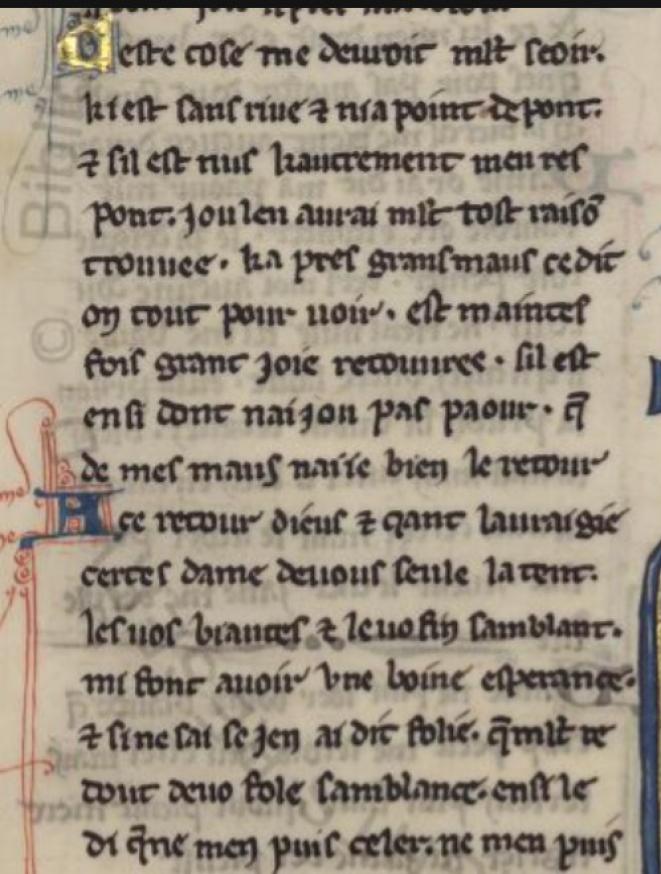 Ceste cose me deuroit mlt seoir.
ki est sans riue ⁊ nia point de pont.
⁊ sil est nus hautrement men res
pont. jou len aurai mlt tost raisõ
trouuee. ka pres grans maus ce dit
on tout pour uoir. est maintes
fois grant joie recouuree. sil est
ensi dont nai jou pas paour. q̃
de mes maus naie bien le retour
A ce retour dieus ⁊ qant laurai gie
certes dame de uous seule la tent.
les uos biautes ⁊ le uo fin samblant.
mi font auoir vne boine esperance.
⁊ si ne sai se jen ai dit folie. q̃ mlt re
dout de uo fole samblance. ensi le
di q̃ ne men puis celer. ne men puis